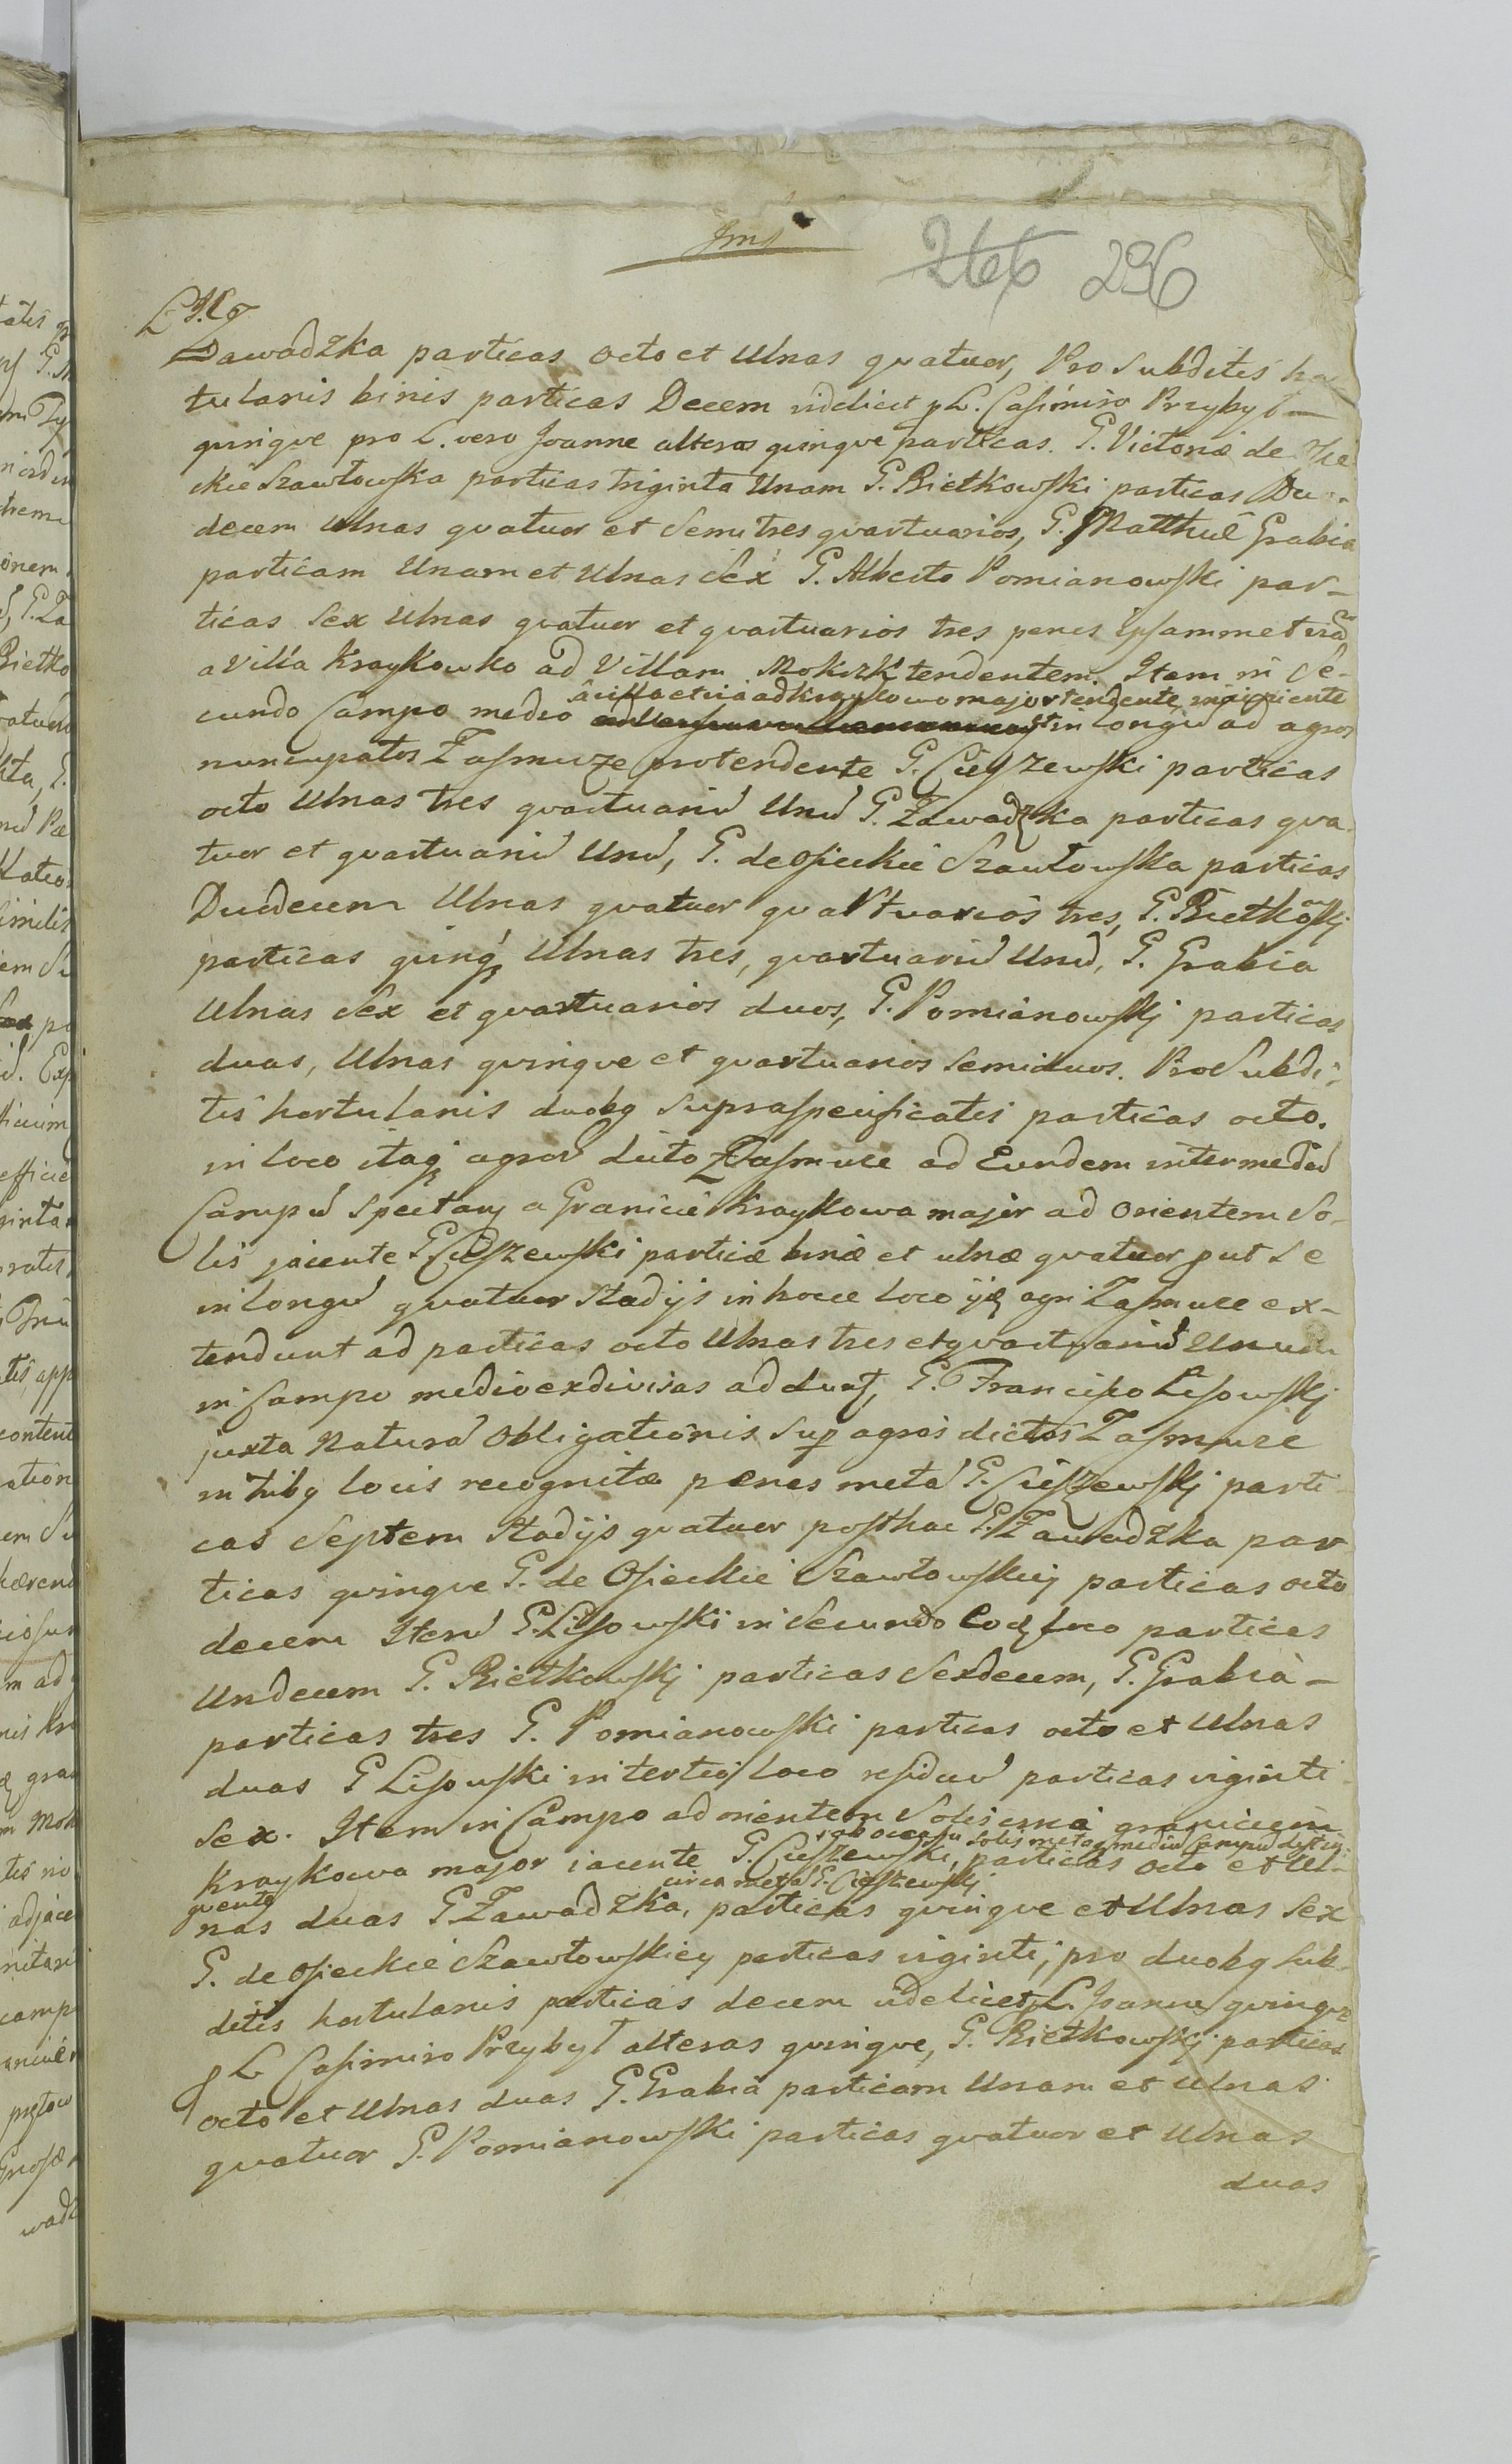 266 296
Zawadzka particas octo et Ulnas quatuor, Pro Subditis hor
tulanis binis particas Decem videlicet p L. Casimiro Przybył
quinque pro L. vero Joanne alteras quinque particas. G. Victoriæ de Osie
ckie Szawłowska particas triginta Unam G. Bietkowski particas Duo
decem Ulnas quatuor et Semi tres quartuarios, G. Mattheû Grabia
particam Unam et Ulnas Sex G. Alberto Pomianowski par-
ticas Sex Ulnas quatuor et quartuarios tres penes ipsammet viã
a Villa Kraykowko ad Villam Mokrzk tendentem. Item in Se-
a villa et via ad Kraykowo major tendente incipiente
cundo Campo medio in longũ ad agros
nuncupatos Zasmuze protendente G. Cieszewski particas
octo Ulnas tres quartuariũ Unũ G. Zawadzka particas qua
tuor et quartuariũ Unũ, G. de Osieckie Szawłowska particas
Duodecem Ulnas quatuor quartuarios tres, G. Bietkowskj
particas quinq Ulnas tres, quartuariũ Unũ, G. Grabia
Ulnas Sex et quartuarios duos, G. Pomianowskj particas
duas, Ulnas quinque et quartuarios Semiduos. Pro Subdi-
tis hortulanis duobq supraspecificatis particas octo.
in loco itaq agrorũ dicto Zasmuce ad Eundem intermediũ
Campũ Spectan a Granicie Kraykowa major ad Orientem So-
lis jacente G Cieszewski particæ binæ et ulnæ quatuor put se
in longũ quatuor Stadijs in hocce loco ijq agri Zasmuce ex-
tendunt ad particas octo Ulnas tres et quartuariũ Unum
in Campo medio exdivisas addunt, G. Francisco Lisowskj
juxta Naturã Obligationis Sup agros dictos Zasmuze
in tribq locis recognitæ penes metã G. Cieszewskj parti-
cas Septem Stadijs quatuor posthac G. Zawadzka par
ticas quinque G. de Osieckie Szawłowskiey particas octo
decem Iterũ G. Lisowski in Secundo loco particas
Undecem G. Bietkowskj particas Sexdecem, G. Grabia -
particas tres G. Pomianowski particas octo et Ulnas
duas G Lisowski in tertio loco residuũ particas viginti
Sex. Item in Campo ad orientem Solis circa graniciem
ab occasu Solis metas mediũ Campũ distin
Kraykowa major iacente G. Cieszewski, particas octo et Ul-
guente circa metã G. Cieszewskj
nas duas G Zawadzka, particas quinque et Ulnas Sex
G. de Osieckie Szawłowskiey particas viginti, pro duobq Sub-
ditis hortulanis particas decem videlicet p L. Joanne quinque
p L Casimiro Przybył alteras quinque, G. Bietkowskj particas
octo et Ulnas duas G. Grabia particam Unam et Ulnas
quatuor G. Pomianowski particas quatuor et Ulnas
duas